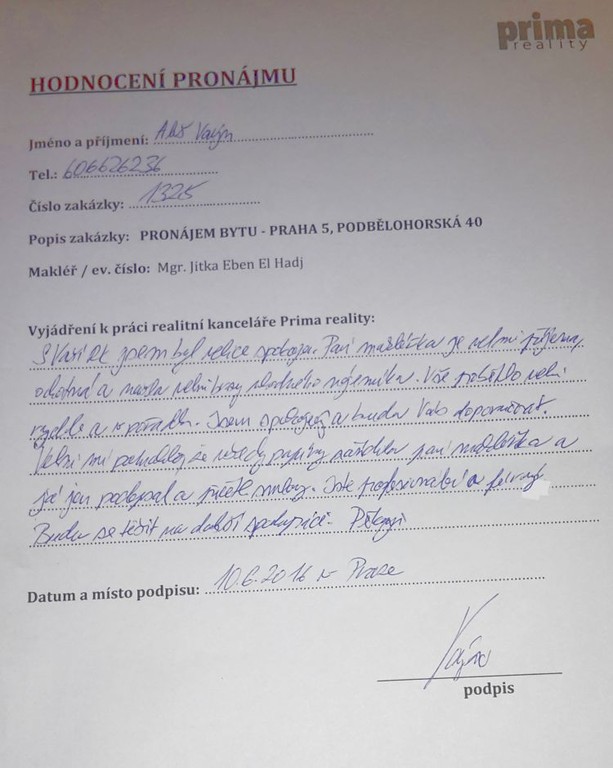 prima
reality
HODNOCENÍ PRONÁJMU
Jméno a příjmení: Aleš
Tel.: 606626236
Číslo zakázky: 1325
Popis zakázky: PRONÁJEM BYTU - PRAHA 5, PODBĚLOHORSKÁ 40
Makléř / ev. číslo: Mgr. Jitka Eben El Hadj
Vyjádření k práci realitní kanceláře Prima reality:
S Vaší RK jsem byl velice spokojen. Paní makléřka je velmi příjemná,
ochotná a našla velmi brzy vhodného nájemníka. Vše proběhlo velmi
rychle a v pořádku. Jsem spokojený a budu Vás doporučovat.
Velmi mi že papíry zařídila paní makléřka a
já jen podepsal a smlouvy. Jste profesionální a
Budu se těšit na další spolupráci. Děkuji
Datum a místo podpisu: 10.6.2016 v Praze
podpis